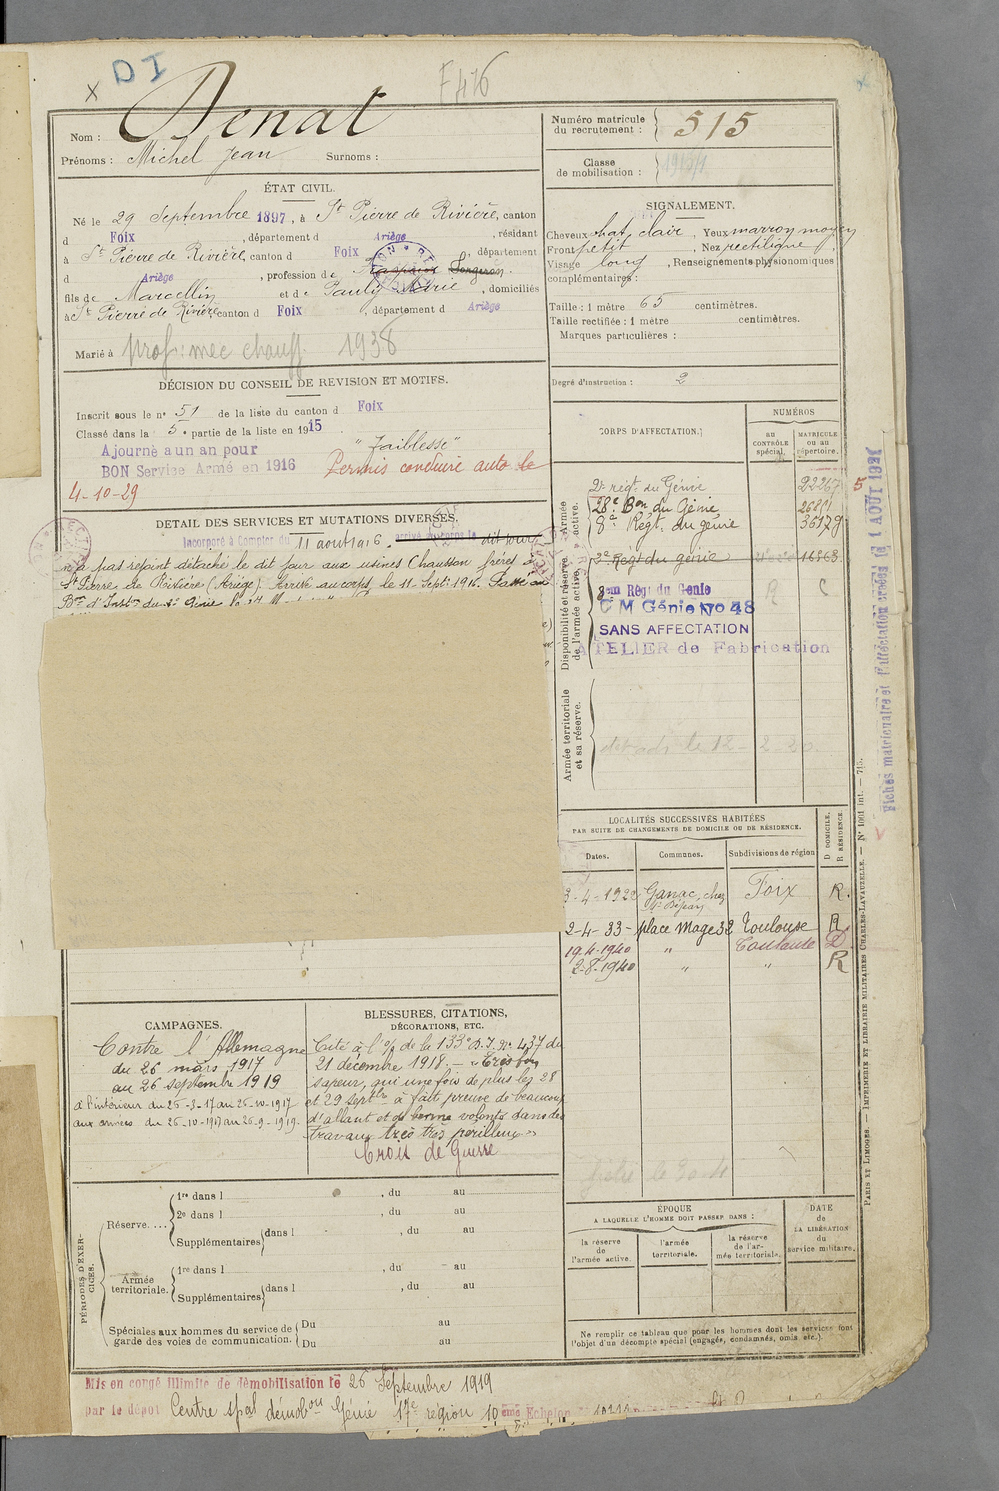 x DI
F 416
Nom : Denat
Prénoms : Michel Jean Surnoms :
Numéro matricule du recrutement : 515
Classe de mobilisation :
ÉTAT CIVIL.
Né le 29 Septembre 1897, à St Pierre de Rivière, canton
d Foix, département d Ariège, résidant
à St Pierre de Rivière, canton d Foix, département
d Ariège, profession de Forgeron
fils de Marcellin et de Pauly Marie, domiciliés
à St Pierre de Rivière, canton d Foix, département d Ariège
Marié à
prof: mec chauff. 1938
SIGNALEMENT.
Cheveux chat, clair, Yeux marron moyen
Front petit, Nez rectiligne
Visage long, Renseignements physionomiques
complémentaires :
Taille : 1 mètre 65 centimètres.
Taille rectifiée : 1 mètre centimètres.
Marques particulières :
Degré d'instruction : 2
DÉCISION DU CONSEIL DE REVISION ET MOTIFS.
Inscrit sous le n° 51 de la liste du canton d Foix
Classé dans la 5e partie de la liste en 1915
Ajourné a un an pour "Faiblesse"
BON Service Armé en 1916 Permis conduire auto le
4-10-29
DÉTAIL DES SERVICES ET MUTATIONS DIVERSES.
Incorporé à Compter du 11 aout 1916, arrivé au corps le dit jour
n'a pas rejoint détaché le dit jour aux usines Chausson frères à
St Pierre de Rivière (Ariège). Arrivé au corps le 11 Septt 1916. Passé au
CORPS D'AFFECTATION.
NUMÉROS
AU CONTRÔLE spécial.
MATRICULE OU AU répertoire.
Armée active.
2e regt du Génie 22267
28e Bon du Génie 26881
8e Régt du génie 36179
Disponibilité et réserve de l'armée active.
2e Régt du génie 16863
8em Rég du Genie R C
C M Génie No 48
SANS AFFECTATION
ATELIER de Fabrication
Armée territoriale et sa réserve.
le 12-2-20.
Fiches matriculaire et d'affectation créées le 1 AOUT 1921
LOCALITÉS SUCCESSIVES HABITÉES
PAR SUITE DE CHANGEMENTS DE DOMICILE OU DE RÉSIDENCE.
Dates. Communes. Subdivisions de région D DOMICILE. R RÉSIDENCE.
3-4-1922 Ganac, chez Foix R.
2-4-33- place Mage 32 Toulouse R
19-4-1940 " Toulouse D
2-8-1940 " " R
CAMPAGNES.
Contre l'Allemagne
du 26 mars 1917
au 26 septembre 1919
à l'intérieur du 26-3-17 au 25-10-1917
aux armées du 26-10-1917 au 26-9-1919.
BLESSURES, CITATIONS,
DÉCORATIONS, ETC.
Cité à l'o/ de la 133e D.I. No 437 du
21 décembre 1918. — "Très bon
sapeur, qui une fois de plus les 28
et 29 septbre a fait preuve de beaucoup
d'allant et de bonne volonté dans des
travaux très très périlleux"
Croix de Guerre
PÉRIODES D'EXERCICES.
Réserve....
1re dans l , du au
2e dans l , du au
Supplémentaires dans l , du au
Armée territoriale.
1re dans l , du au
Supplémentaires dans l , du au
Spéciales aux hommes du service de garde des voies de communication.
Du au
Du au
ÉPOQUE
A LAQUELLE L'HOMME DOIT PASSER DANS :
la réserve de l'armée active.
l'armée territoriale.
la réserve de l'armée territoriale.
DATE de LA LIBÉRATION du service militaire.
Ne remplir ce tableau que pour les hommes dont les services font
l'objet d'un décompte spécial (engagés, condamnés, omis, etc.).
PARIS ET LIMOGES. — IMPRIMERIE ET LIBRAIRIE MILITAIRES CHARLES-LAVAUZELLE. — N° 1001 int. — 715.
Mis en congé illimité de démobilisation le 26 Septembre 1919
par le dépôt Centre spal démobon Génie 17e région 10eme Echelon